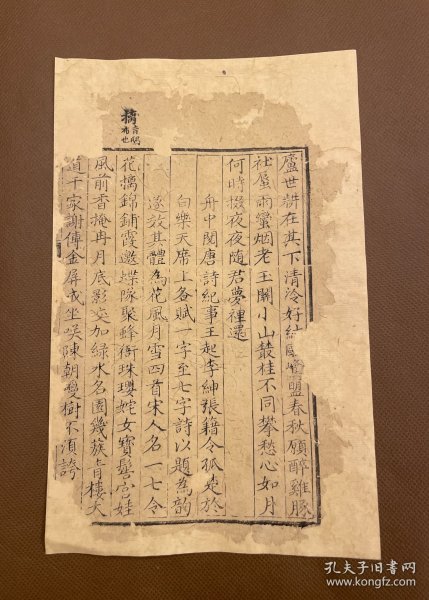 摛
廬世耕在其下清泠好結盟春秋願醉雞豚
社蜃雨蠻烟老玉關小山叢桂不同攀愁心如月
何時掇夜夜隨君夢裡還
舟中閱唐詩紀事王起李紳張籍令狐楚於
白樂天席上各賦一字至七字詩以題為韵
遂效其體為花風月雪四首宋人名一七令
花摛錦鋪霞邀蝶隊聚蜂衙珠瓔姹女寶髻宮娃
風前香掩冉月底影交加綠水名園幾簇青樓大
道千家謝傅金屏或坐唤陳朝雙樹不須誇
孔夫子旧书网
www.kongfz.com